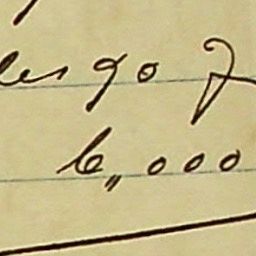 les 90 7
6,,000